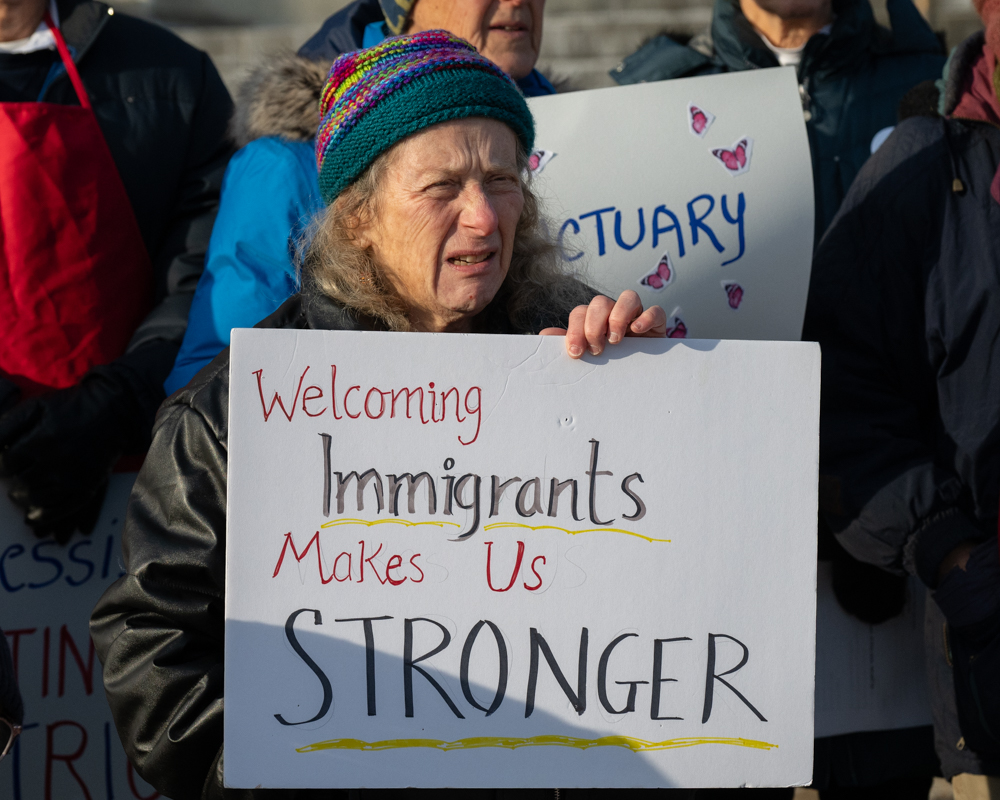 CTUARY
Welcoming
Immigrants
Makes Us
STRONGER
essi
TIN
TRIC